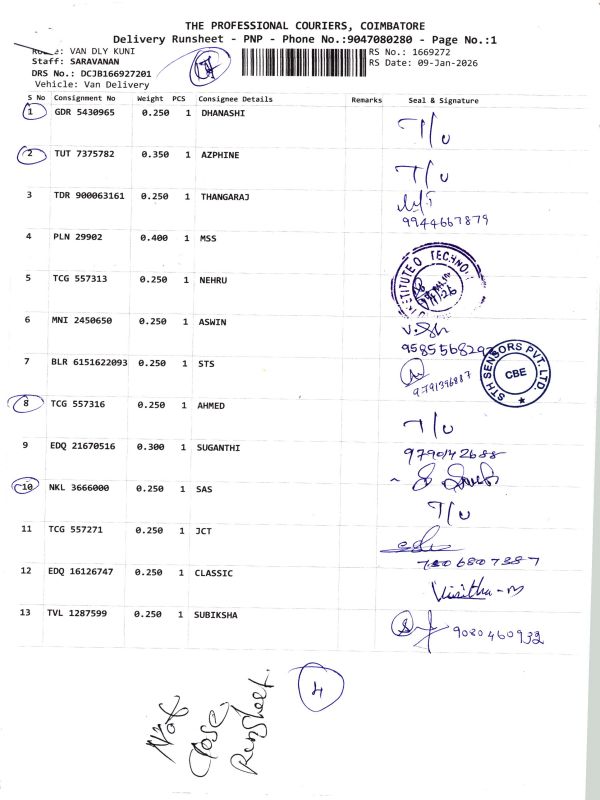 THE PROFESSIONAL COURIERS, COIMBATORE
Delivery Runsheet - PNP - Phone No.:9047080280 - Page No.:1
VAN DLY KUNI
RS No.: 1669272
Staff: SARAVANAN
RS Date: 09-Jan-2026
DRS No.: DCJB166927201
Vehicle: Van Delivery
S No Consignment No Weight PCS Consignee Details Remarks Seal & Signature
1 GDR 5430965 0.250 1 DHANASHI T/U
2 TUT 7375782 0.350 1 AZPHINE T/U
3 TDR 900063161 0.250 1 THANGARAJ
9944667879
4 PLN 29902 0.400 1 MSS
5 TCG 557313 0.250 1 NEHRU
6 MNI 2450650 0.250 1 ASWIN
7 BLR 6151622093 0.250 1 STS
STH SENSORS PVT. LTD.
CBE
8 TCG 557316 0.250 1 AHMED T/U
9 EDQ 21670516 0.300 1 SUGANTHI
9790142688
10 NKL 3666000 0.250 1 SAS T/U
11 TCG 557271 0.250 1 JCT
12 EDQ 16126747 0.250 1 CLASSIC
13 TVL 1287599 0.250 1 SUBIKSHA 9080460932
4
Not
Close
Runsheet.